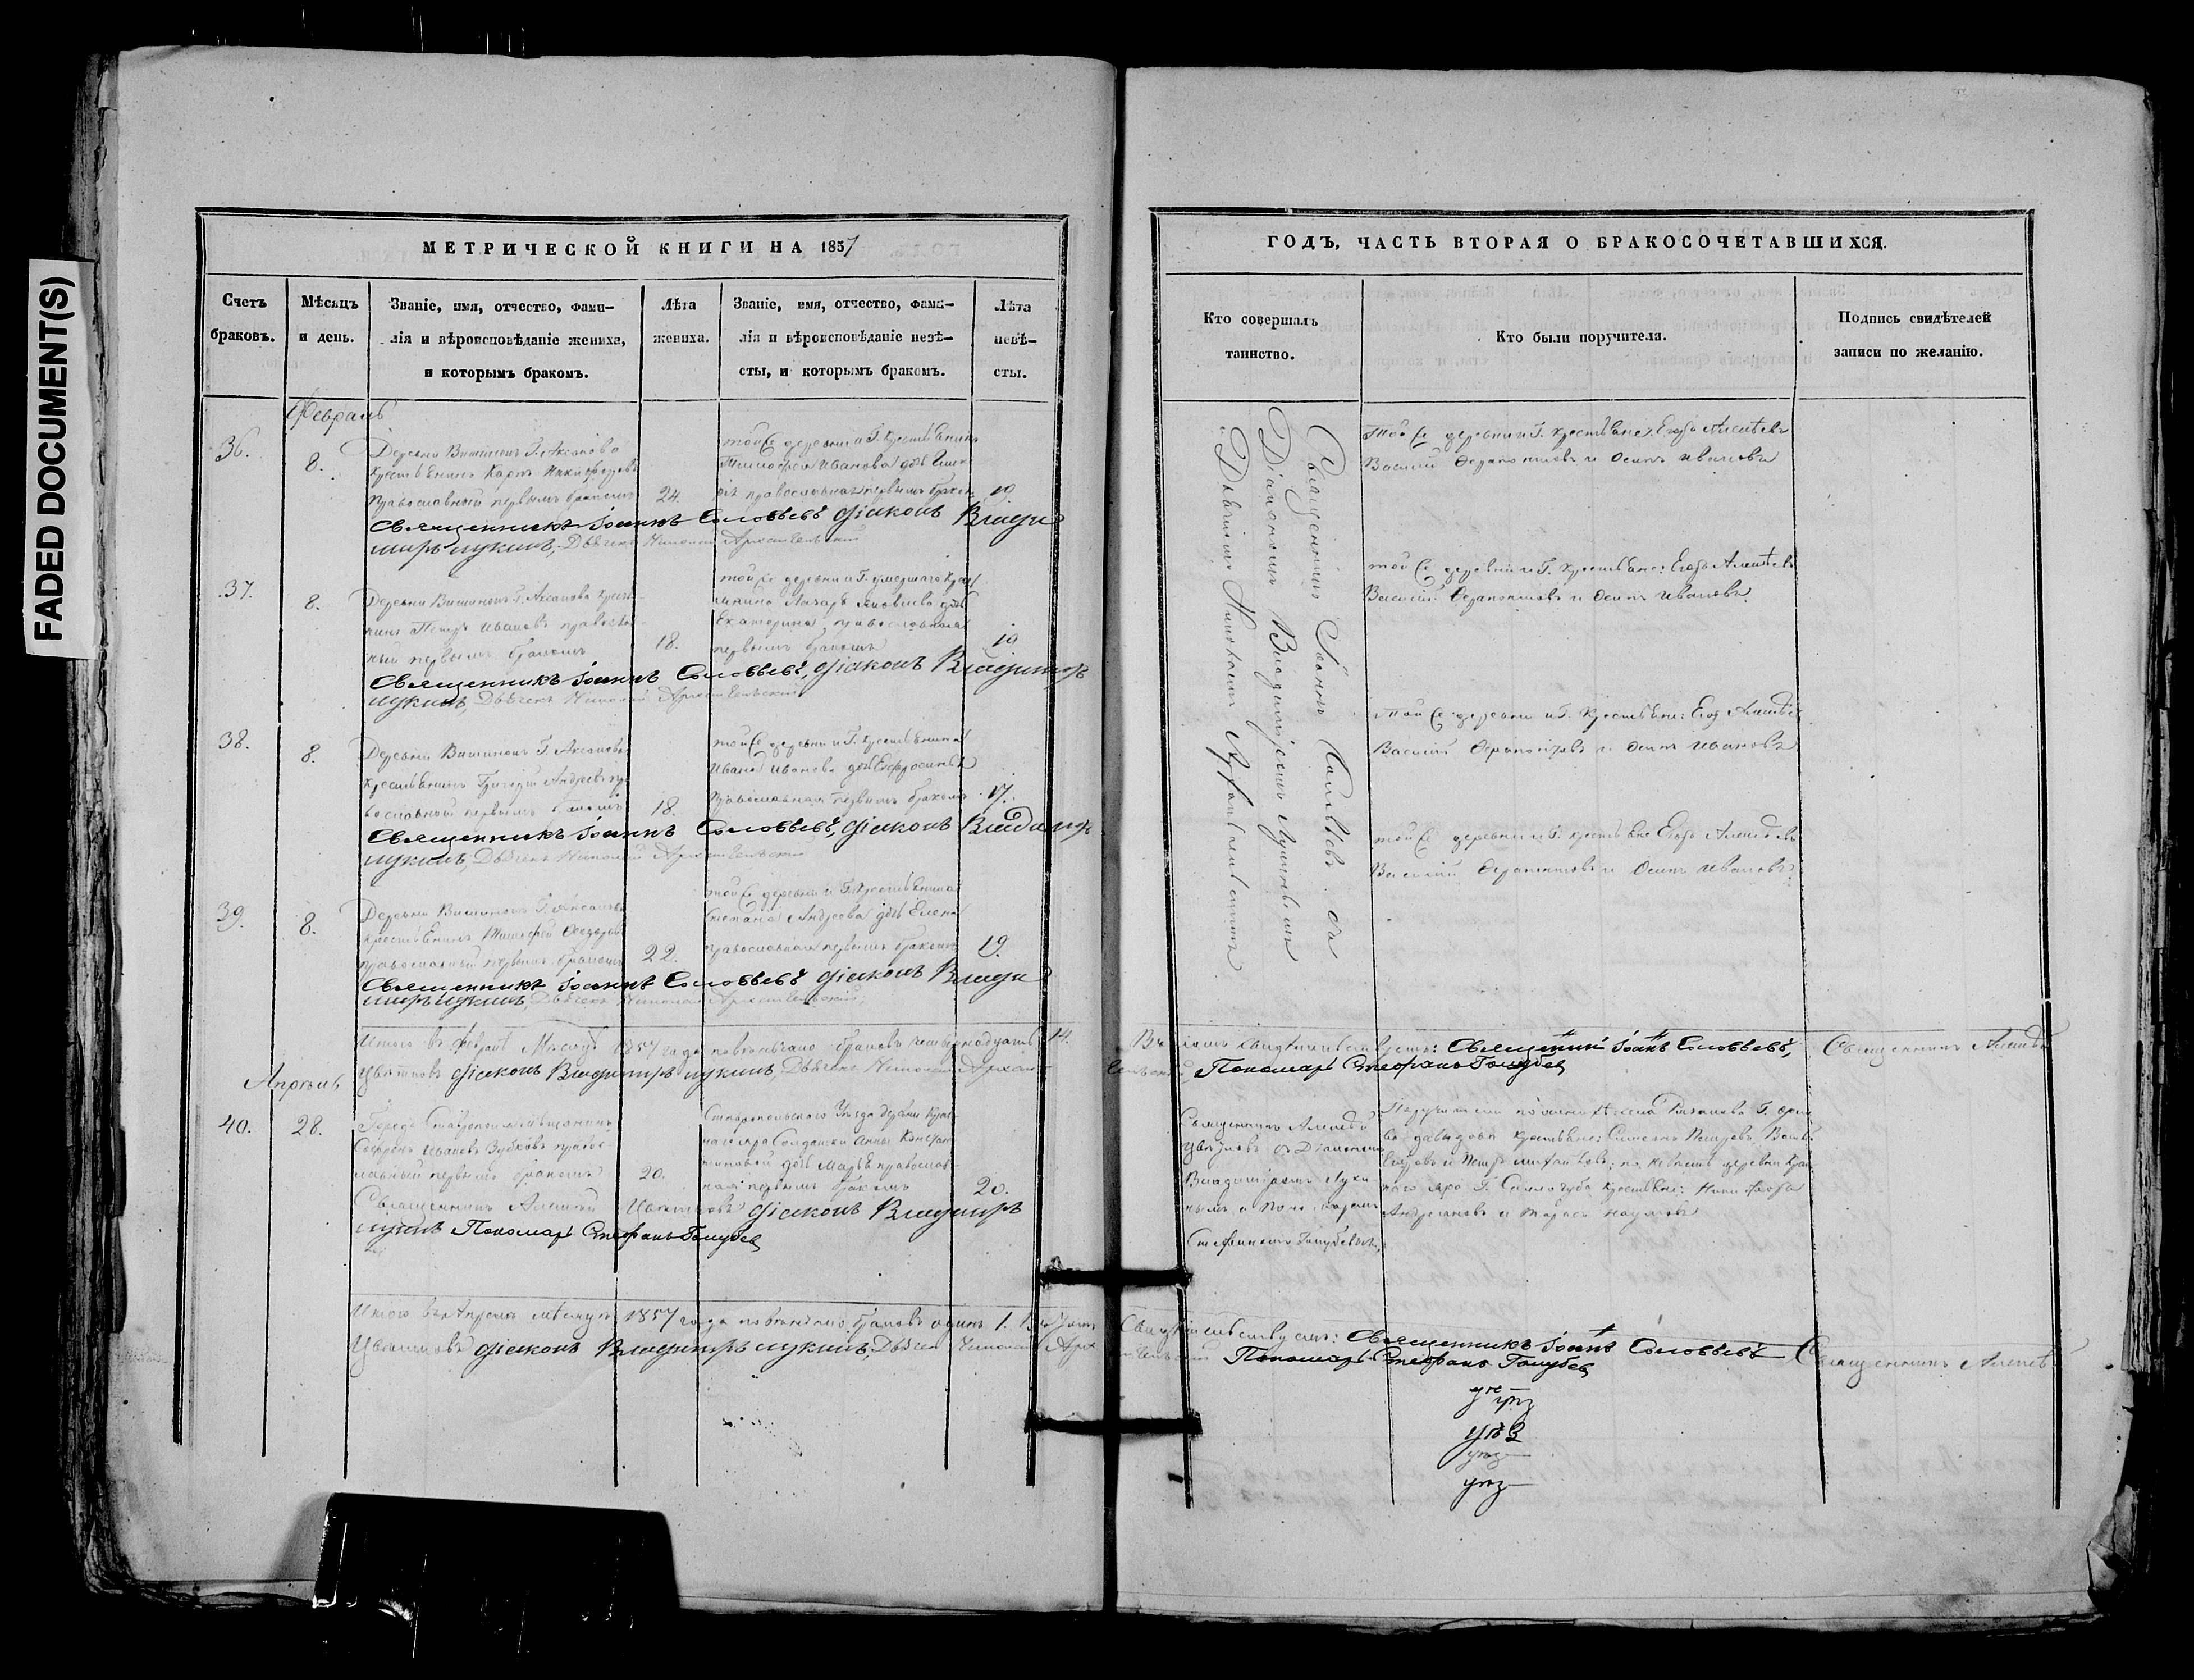 FADED DOCUMENT(S)
МЕТРИЧЕСКОЙ КНИГИ НА 1857
Счетъ браковъ.
Мѣсяцъ и день.
Званіе, имя, отчество, фами-
лія и вѣроисповѣданіе жениха,
и которымъ бракомъ.
Лѣта жениха.
Званіе, имя, отчество, фами-
лія и вѣроисповѣданіе невѣ-
сты, и которымъ бракомъ.
Лѣта невѣ-
сты.
Февраль
36.
8.
Деревни Г. Аксакова
крестьянинъ Карпъ Никифоровъ
православный первымъ бракомъ
24.
тойже деревни и Г. крестьянина
Тимофея Иванова дочь
православная первымъ бракомъ
19
Священникъ Іоаннъ Соловьевъ діаконъ Влади
миръ Лукинъ, Дьячекъ Николай Архангельскій
37.
8.
Деревни Г. Аксакова крестья
нинъ Петръ Ивановъ православ
ный первымъ бракомъ
18.
тойже деревни и Г. умершаго крест
янина Лазаря Яковлева дочь
Екатерина православная
первымъ бракомъ
19
Священникъ Іоаннъ Соловьевъ, діаконъ Владимиръ
Лукинъ, Дьячекъ Николай Архангельскій
38.
8.
Деревни Г. Аксакова
крестьянинъ Григорій Андреевъ пра
вославный первымъ бракомъ
18.
тойже деревни и Г. крестьянина
Ивана Иванова дочь Евфросинья
православная первымъ бракомъ
17.
Священникъ Іоаннъ Соловьевъ, діаконъ Владимиръ
Лукинъ, Дьячекъ Николай Архангельскій
39.
8.
Деревни Г. Аксакова
крестьянинъ Тимофей Федоровъ
православный первымъ бракомъ
22.
тойже деревни и Г. крестьянина
Степана Андреева дочь Елена
православная первымъ бракомъ
19.
Священникъ Іоаннъ Соловьевъ діаконъ Влади
миръ Лукинъ, Дьячекъ Николай Архангельскій
Итого въ Февралѣ мѣсяцѣ 1857 года повѣнчано браковъ четырнадцать 14.
Цвѣтковъ діаконъ Владимиръ Лукинъ, Дьячекъ Николай Архан
Апрѣль
40.
28.
Города Ставрополя мѣщанинъ
Софронъ Ивановъ Зубковъ православ
лавный первымъ бракомъ
20.
Ставропольского Уѣзда деревни Крас
наго Яра Солдатки Анны Констан
тиновой дочь Марья православ
ная первымъ бракомъ
20.
Священникъ Алексѣй Цвѣтковъ діаконъ Владимиръ
Лукинъ Пономарь Стефанъ Голубев
Итого въ Апрѣлѣ мѣсяцѣ 1857 года повѣнчано браковъ одинъ 1. Въ чемъ
Цвѣтковъ діаконъ Владимиръ Лукинъ, Дьячекъ Николай Арх
ГОДЪ, ЧАСТЬ ВТОРАЯ О БРАКОСОЧЕТАВШИХСЯ.
Кто совершалъ
таинство.
Кто были поручители.
Подпись свидѣтелей
записи по желанію.
Священникъ Іоаннъ Соловьевъ съ
Діакономъ Владимиромъ Лукинымъ
Дьячкомъ Николаемъ Архангельскимъ
Тойже деревни и Г. крестьяне: Егоръ Алексѣевъ
Василій Ферапонтовъ и Осипъ Ивановъ
Тойже деревни и Г. крестьяне: Егоръ Алексѣевъ
Василій Ферапонтовъ и Осипъ Ивановъ
Тойже деревни и Г. крестьяне: Егоръ Алексѣевъ
Василій Ферапонтовъ и Осипъ Ивановъ
Тойже деревни и Г. крестьяне Егоръ Алексѣевъ
Василій Ферапонтовъ и Осипъ Ивановъ
Въ чемъ свидѣтельствуемъ: Священникъ Іоаннъ Соловьевъ, Священникъ Алексѣй
гельскій, Пономарь Стефанъ Голубев
Священникъ Алексѣй
Цвѣтковъ съ Діакономъ
Владимиромъ Луки-
нымъ и Пономаремъ
Стефаномъ Голубевымъ
Поручители по женихѣ
Давыдова крестьяне: Симеонъ Петровъ,
Егоровъ и Петръ Михайловъ; по невѣстѣ деревни Крас
наго Яра Г. крестьяне: Никифоръ
Андреяновъ и Тарасъ Наумовъ
Свидѣтельствуемъ: Священникъ Іоаннъ Соловьевъ Священникъ Алексѣй
гельскій Пономарь Стефанъ Голубев